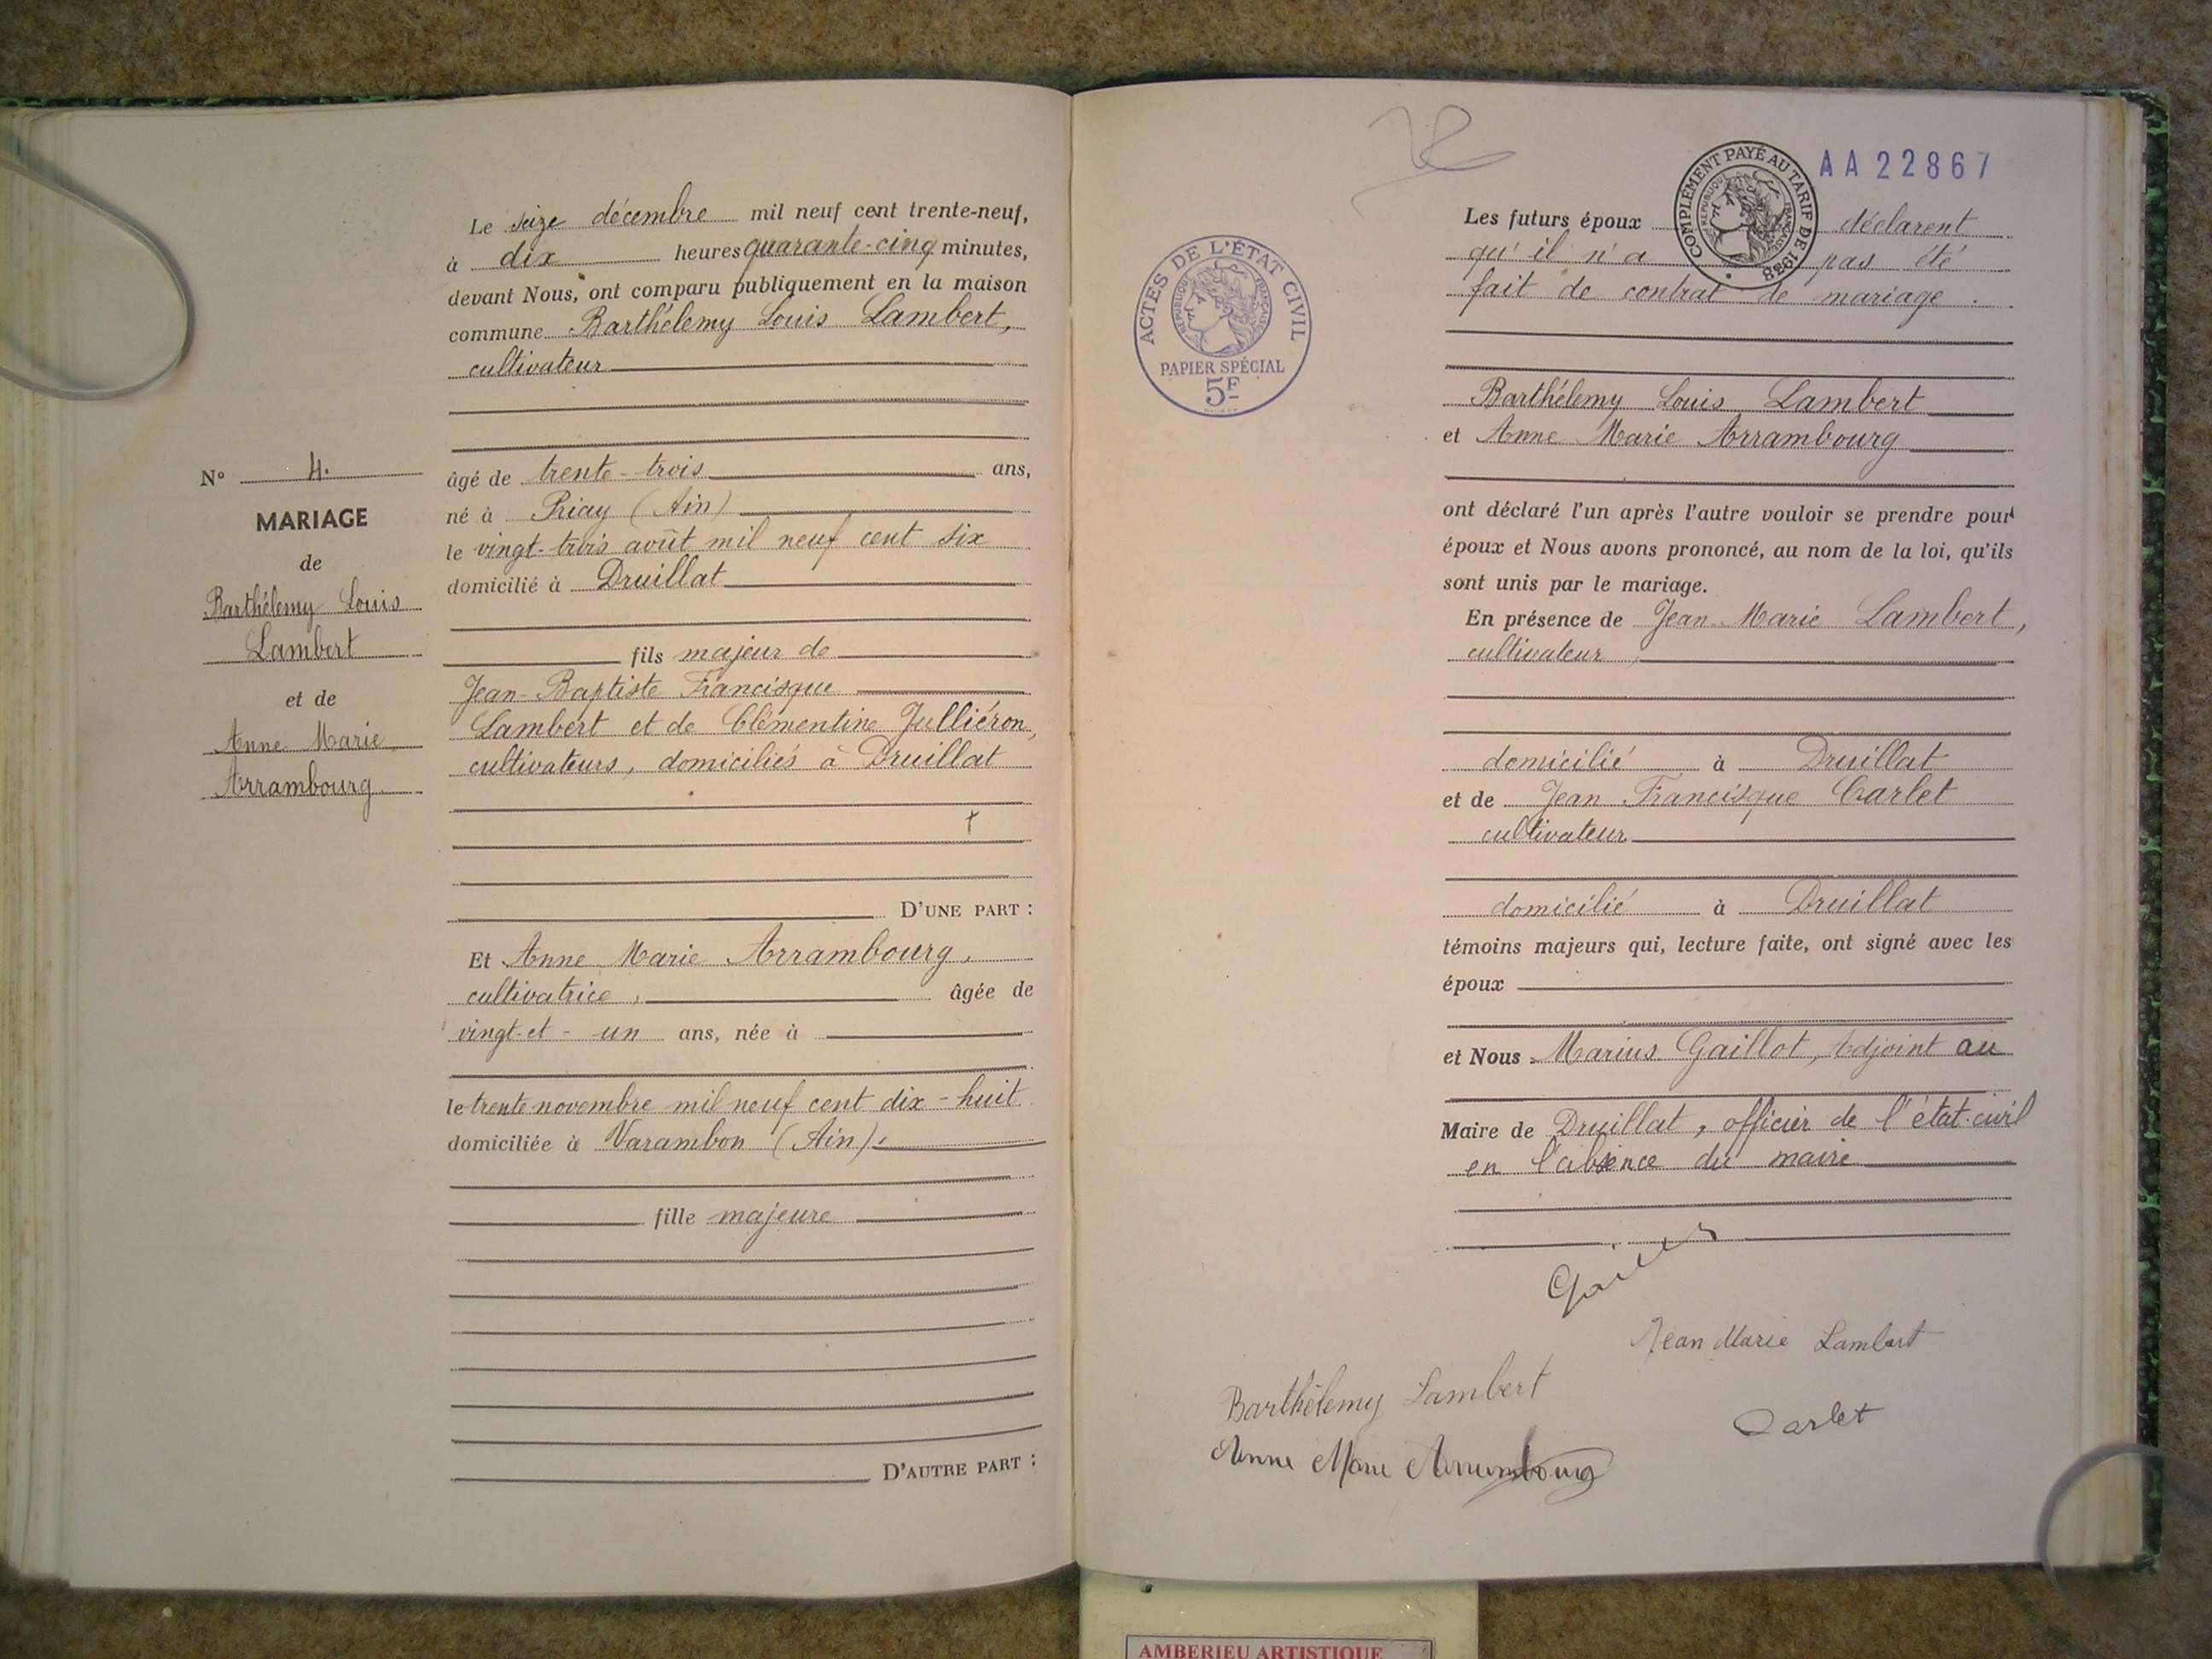 Le seize décembre mil neuf cent trente-neuf,
à dix heures quarante-cinq minutes,
devant Nous, ont comparu publiquement en la maison
commune Barthélemy Louis Lambert,
cultivateur
âgé de trente-trois ans,
né à Priay (Ain)
le vingt-trois août mil neuf cent six
domicilié à Druillat
fils majeur de
Jean-Baptiste Francisque
Lambert et de Clémentine Julliéron,
cultivateurs, domiciliés à Druillat
D'UNE PART :
Et Anne Marie Arrambourg,
cultivatrice, âgée de
vingt-et-un ans, née à
le trente novembre mil neuf cent dix-huit
domiciliée à Varambon (Ain).
fille majeure
D'AUTRE PART :
N° 4.
MARIAGE
de
Barthélemy Louis
Lambert
et de
Anne Marie
Arrambourg
ACTES DE L'ÉTAT CIVIL
RÉPUBLIQUE FRANÇAISE
PAPIER SPÉCIAL
5F
COMPLÉMENT PAYÉ AU TARIF DE 1938
RÉPUBLIQUE FRANÇAISE
AA22867
Les futurs époux déclarent
qu'il n'a pas été
fait de contrat de mariage.
Barthélemy Louis Lambert
et Anne Marie Arrambourg
ont déclaré l'un après l'autre vouloir se prendre pour
époux et Nous avons prononcé, au nom de la loi, qu'ils
sont unis par le mariage.
En présence de Jean-Marie Lambert,
cultivateur,
domicilié à Druillat
et de Jean Francisque Carlet
cultivateur
domicilié à Druillat
témoins majeurs qui, lecture faite, ont signé avec les
époux
et Nous Marius Gaillot, Adjoint au
Maire de Druillat, officier de l'état-civil
en l'absence du maire
Jean Marie Lambert
Barthélemy Lambert
Carlet
Anne Marie Arrambourg
AMBERIEU ARTISTIQUE